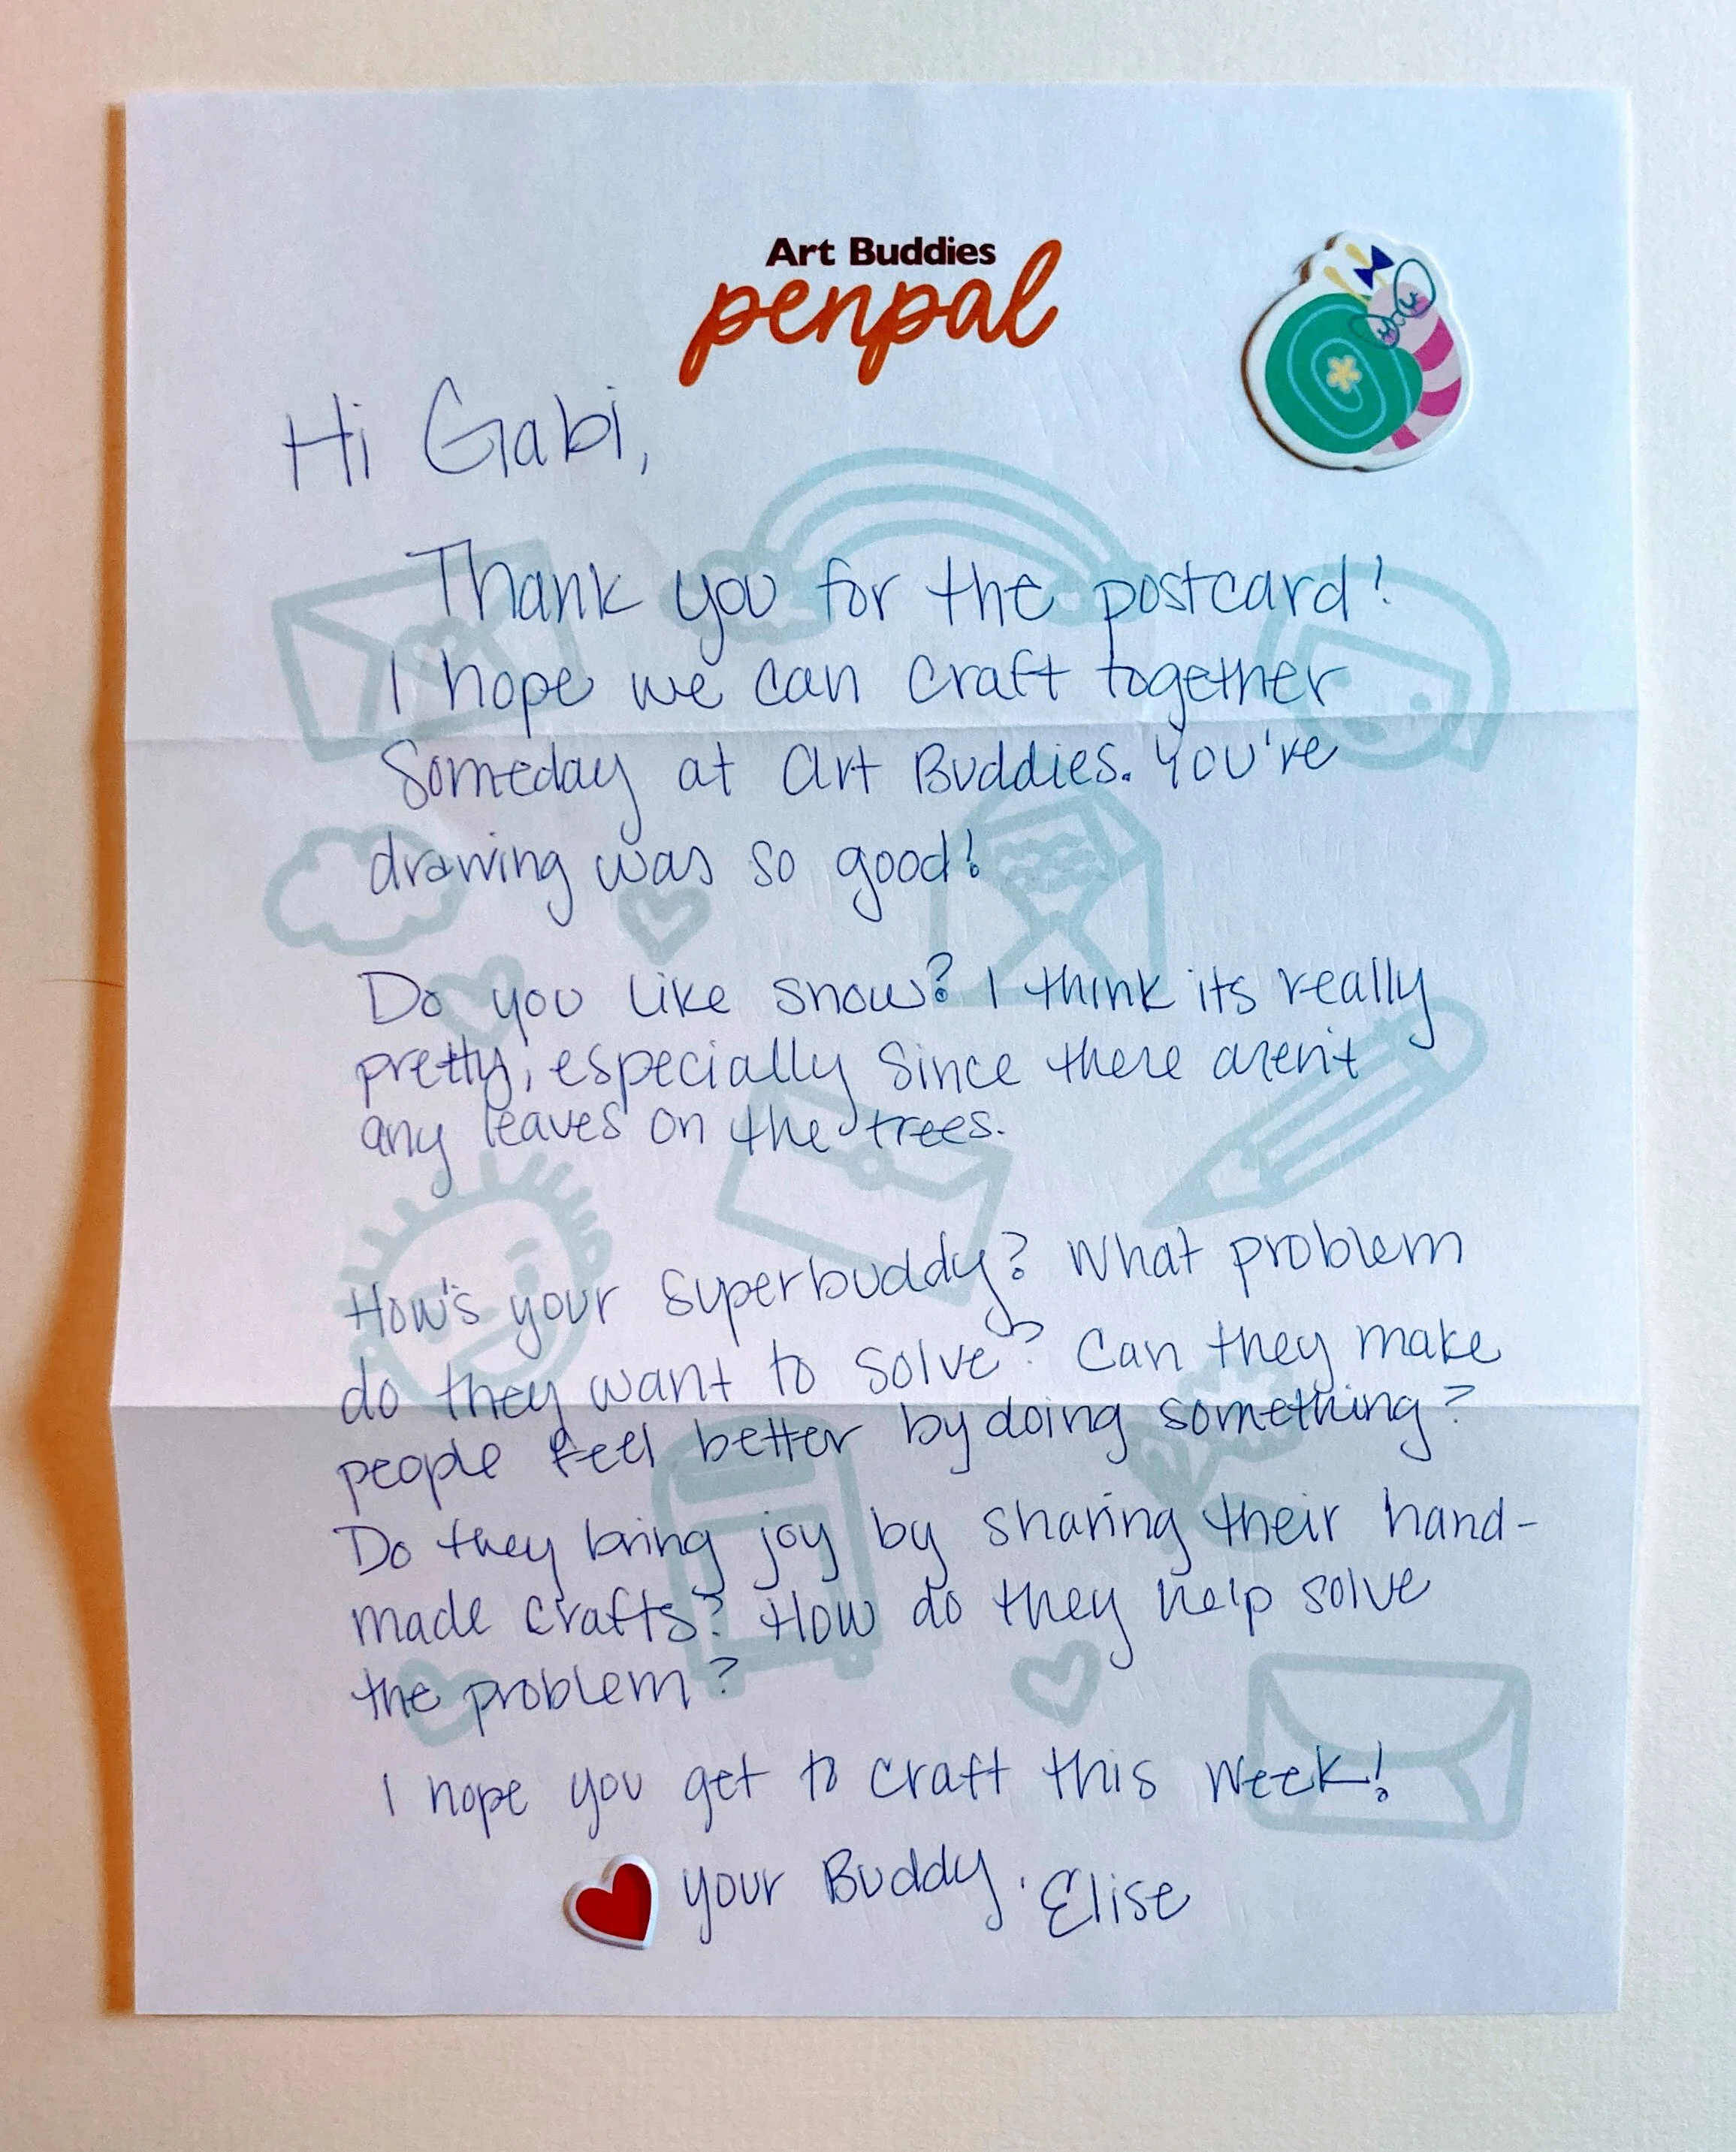 Art Buddies
penpal
Hi Gabi,
Thank you for the postcard!
I hope we can craft together
Someday at Art Buddies. You've
drawing was so good!
Do you like snow? I think its really
pretty, especially since there aren't
any leaves on the trees.
How's your superbuddy? What problem
do they want to solve? Can they make
people feel better by doing something?
Do they bring joy by sharing their hand-
made crafts? How do they help solve
the problem?
I hope you get to craft this week!
your Buddy, Elise